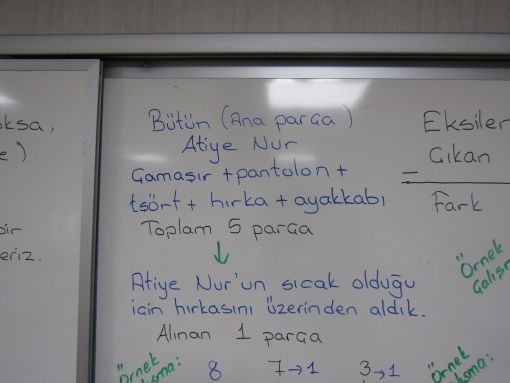 Bütün (Ana parça)
Atiye Nur
Çamaşır + pantolon +
tşört + hırka + ayakkabı
Toplam 5 parça
↓
Atiye Nur'un sıcak olduğu
için hırkasını üzerinden aldık.
Alınan 1 parça
Örnek
8 7→1 3→1
Eksilen
Çıkan
=
Fark
Örnek
Örnek
eriz.